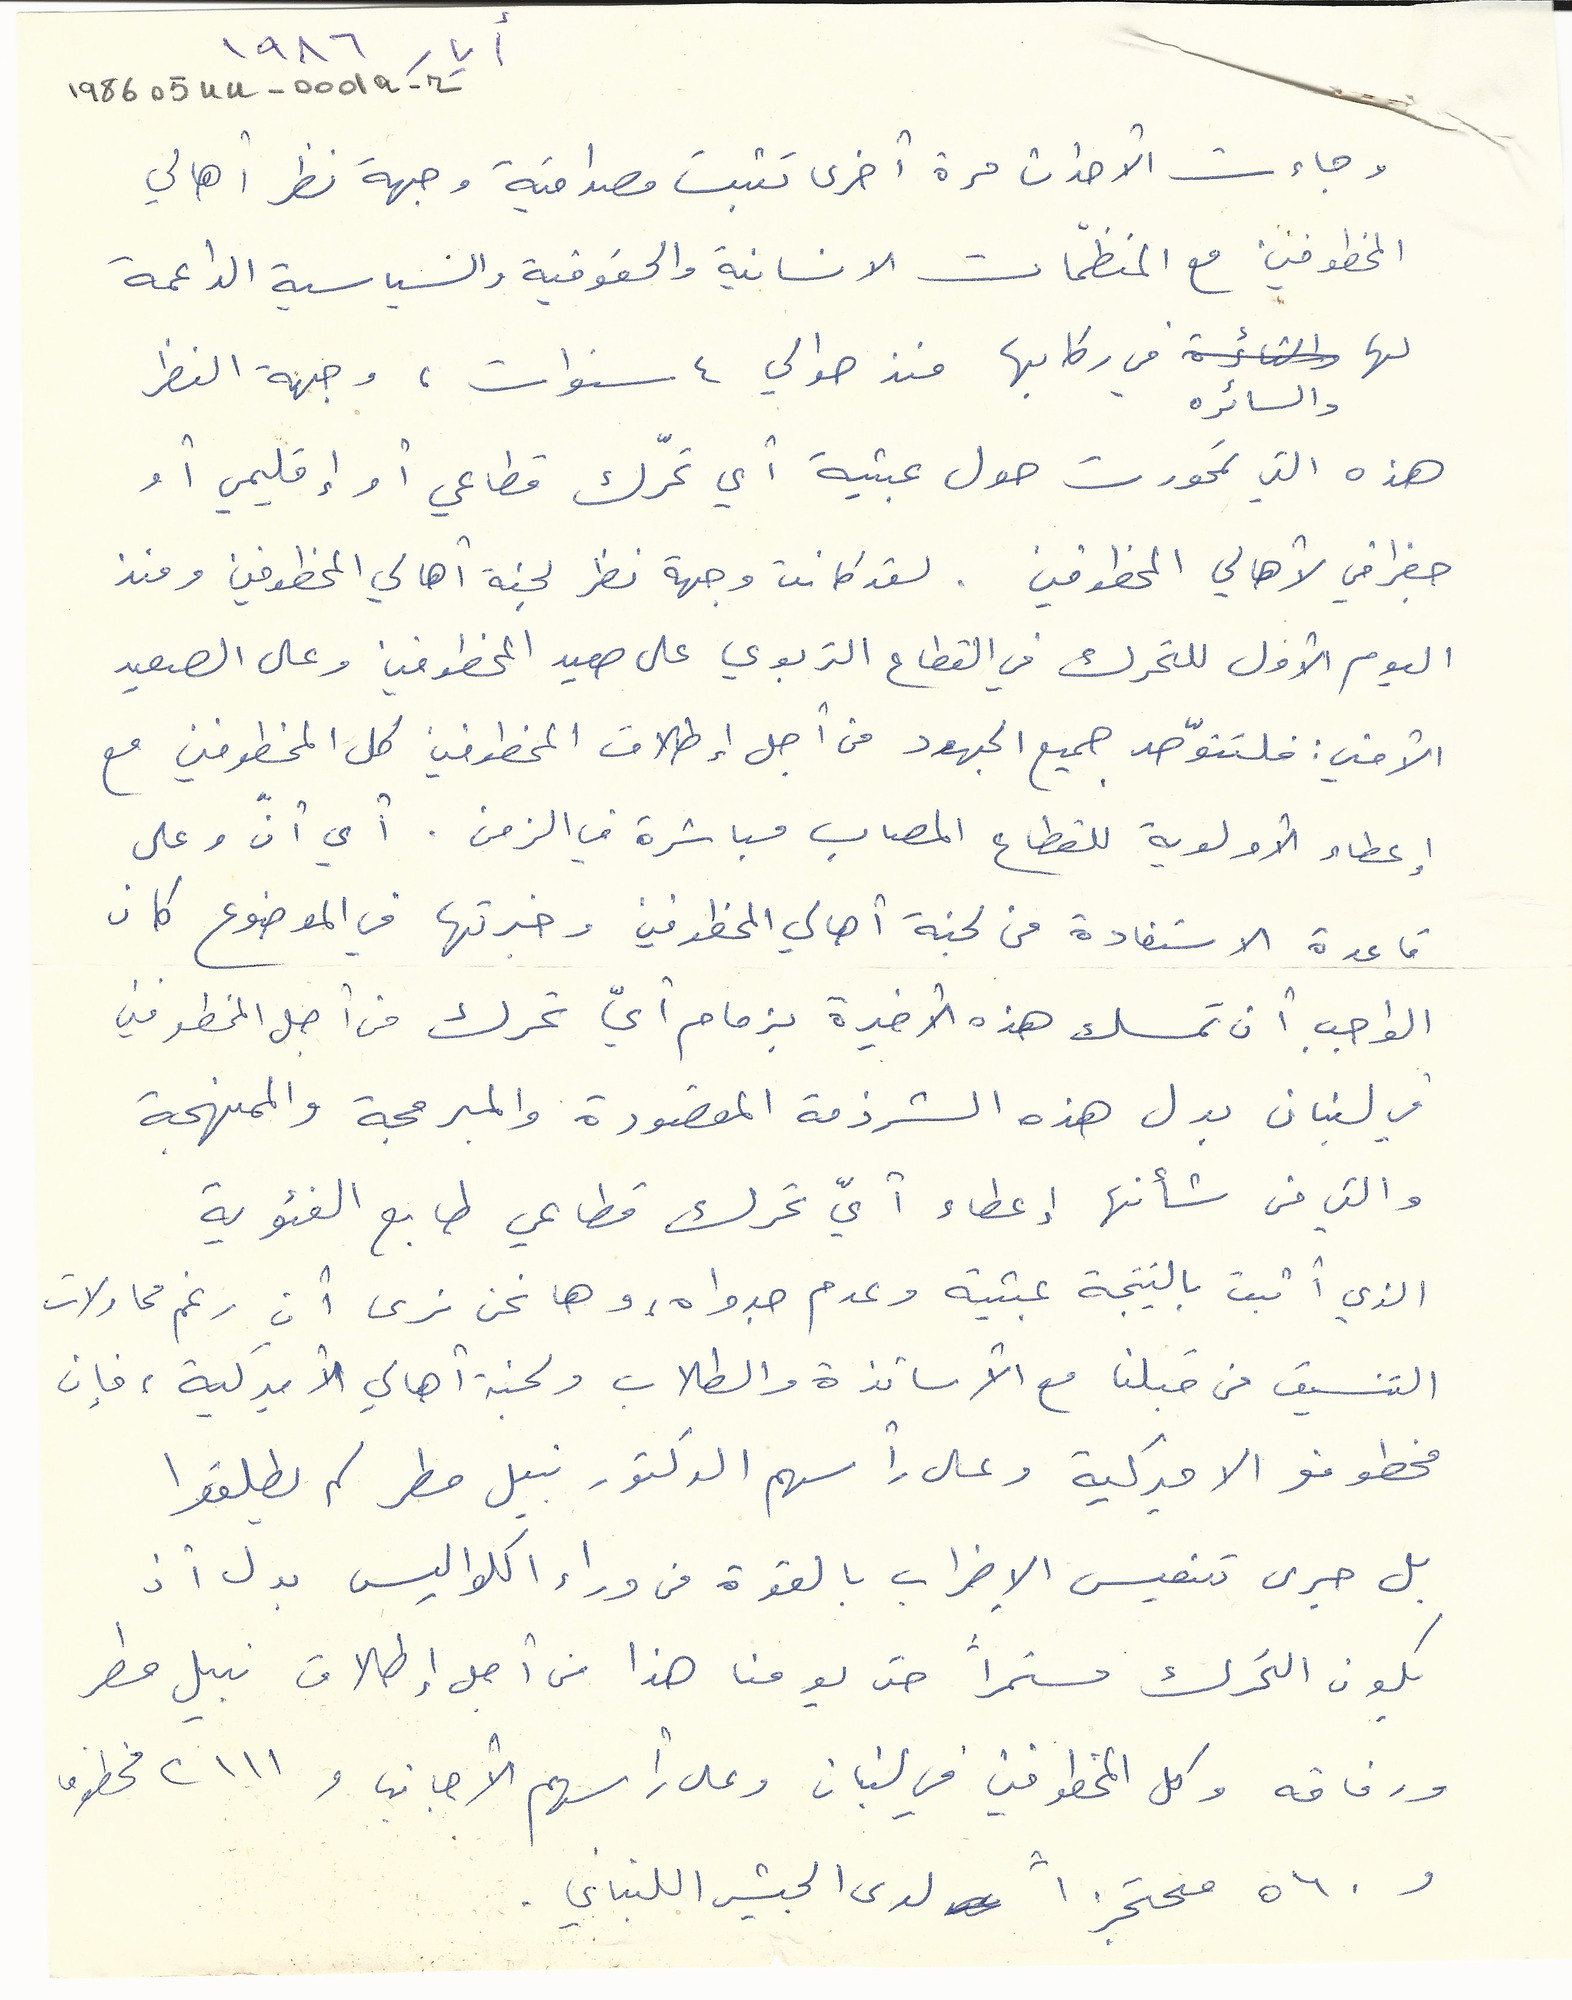 أيار ١٩٨٦
198605uu-0001a-ع
وجاءت الأحداث مرة أخرى تثبت مصداقية وجهة نظر أهالي
المخطوفين مع المنظّمات الانسانية والحقوقية والسياسية الداعمة
لها والسائرة في ركابها منذ حوالي ٤ سنوات ، وجهة النظر
والسائره
هذه التي تمحورت حول عبثية أي تحرّك قطاعي أو إقليمي أو
جغرافي لأهالي المخطوفين . لقد كانت وجهة نظر لجنة أهالي المخطوفين ومنذ
اليوم الأول للتحرك في القطاع التربوي على صعيد المخطوفين وعلى الصعيد
الأمني : فلتتوحّد جميع الجهود من أجل إطلاق المخطوفين كل المخطوفين مع
إعطاء الأولوية للقطاع المصاب مباشرة في الزمن . أي أنّ وعلى
قاعدة الاستفادة من لجنة أهالي المخطوفين وخبرتها في الموضوع كان
الواجب أن تمسك هذه الأخيرة بزمام أيّ تحرك من أجل المخطوفين
في لبنان بدل هذه الشرذمة المقصودة والمبرمجة والممنهجة
والتي من شأنها إعطاء أيّ تحرك قطاعي طابع الفئوية
الذي أثبت بالنتيجة عبثيته وعدم جدواه، وها نحن نرى أن رغم محاولات
التنسيق من قبلنا مع الأساتذة والطلاب ولجنة أهالي الأميركية ، فإن
مخطوفو الاميركية وعلى رأسهم الدكتور نبيل مطر لم يطلقوا
بل جرى تنفيس الإضراب بالقوة من وراء الكواليس بدل أن
يكون التحرك مستمراً حتى يومنا هذا من أجل إطلاق نبيل مطر
ورفاقه وكل المخطوفين في لبنان وعلى رأسهم الأجانب و ٢١١١ مخطوفا
و ٥٦٠ محتجزاً لدى الجيش اللبناني .